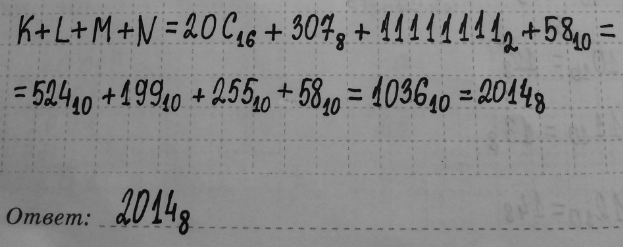 K+L+M+N=20C₁₆+307₈+11111111₂+58₁₀=
=524₁₀+199₁₀+255₁₀+58₁₀=1036₁₀=2014₈
Ответ: 2014₈